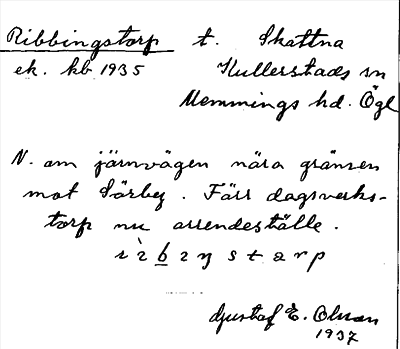 Ribbingstorp t. Skattna
ek. kb. 1935 Kullerstads sn
Memmings hd. Ögl
N. om järnvägen nära gränsen
mot Sörby. Förr dagsverks-
torp nu arrendeställe.
Gustaf E. Olsson
1937